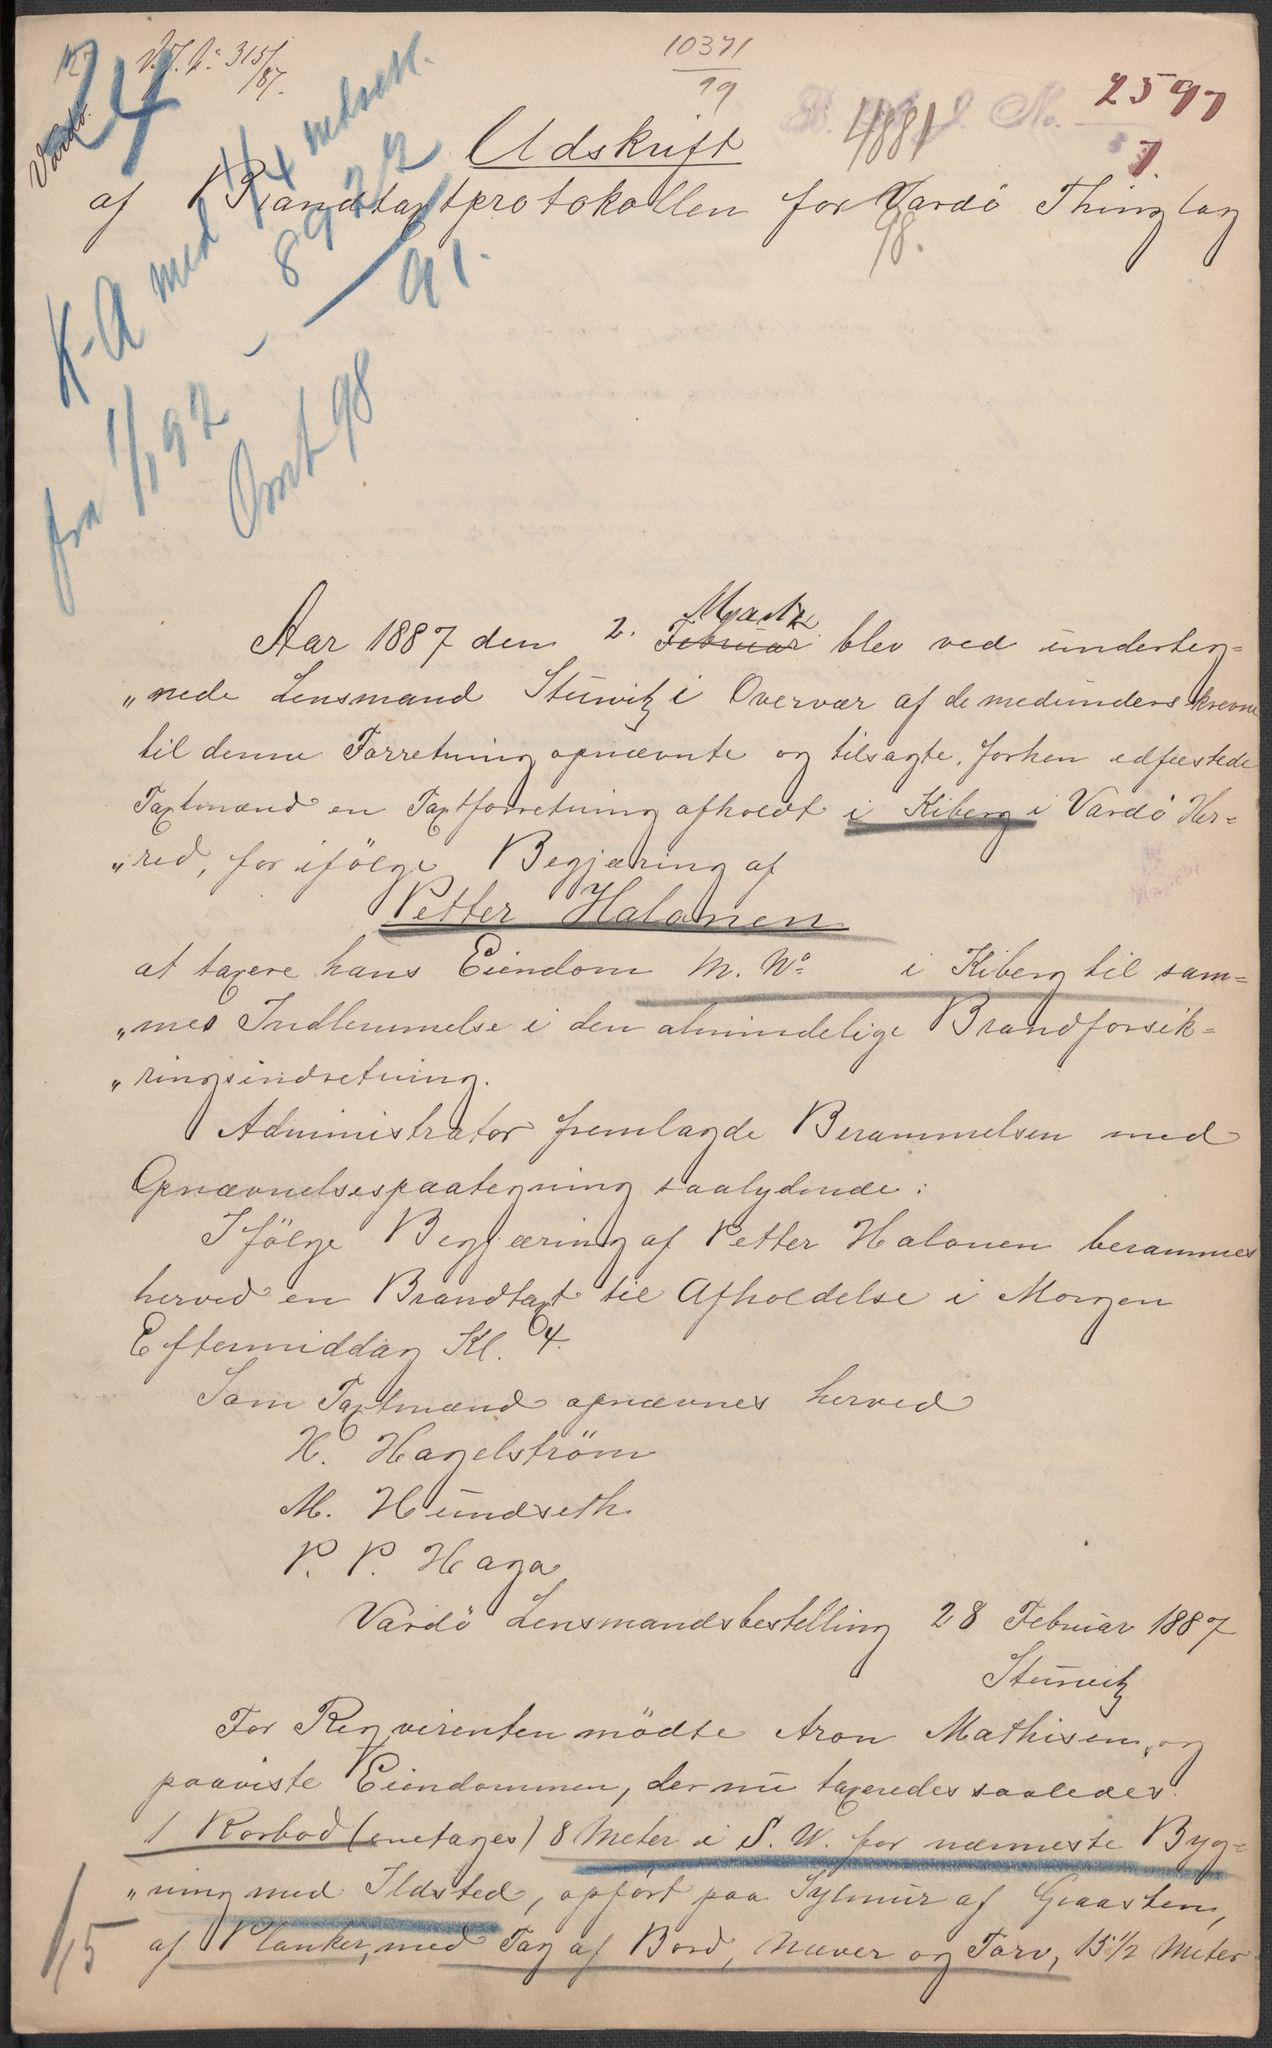 V. J. No 315/87.
10371/99
2597
7
24
Vardö.
4881
98.
Udskrift
af Brandtaxtprotokollen for Vardö Thinglag
K-A med
8922
91.
fra 1/1 92 -
Omt 98
Aar 1887 den 2. Marts Februar blev ved underteg=
„nede Lensmand Stüwitz i Overvær af de medunderskrevne
til denne Forretning opnævnte og tilsagte, forhen edfæstede
Taxtmænd en Taxtforretning afholdt i Kiberg i Vardö Her=
„red, for ifölge Begjæring af
Petter Halonen
at taxere hans Eiendom M. No i Kiberg til sam=
„mes Indlemmelse i den almindelige Brandforsik=
„ringsindretning.
Administrator fremlagde Berammelsen med
Opnævnelsespaategning saalydende:
Ifölge Begjæring af Petter Halonen berammes
herved en Brandtaxt til Afholdelse i Morgen
Eftermiddag Kl. 4.
Som Taxtmænd opnævnes herved
H. Hagelström
M. Hundseth
P. P. Haga
Vardö Lensmandsbestilling 28 Februar 1887
Stüwitz
For Reqvirenten mödte Aron Mathisen, og
paaviste Eiendommen, der nu taxeredes saaledes:
1 Rorbod (enetages) 8 Meter i S. W. for nærmeste Byg=
„ning med Ildsted, opfört paa Sylmur af Graasten,
af Planker, med Tag af Bord, Næver og Torv, 15 1/2 Meter
1/15